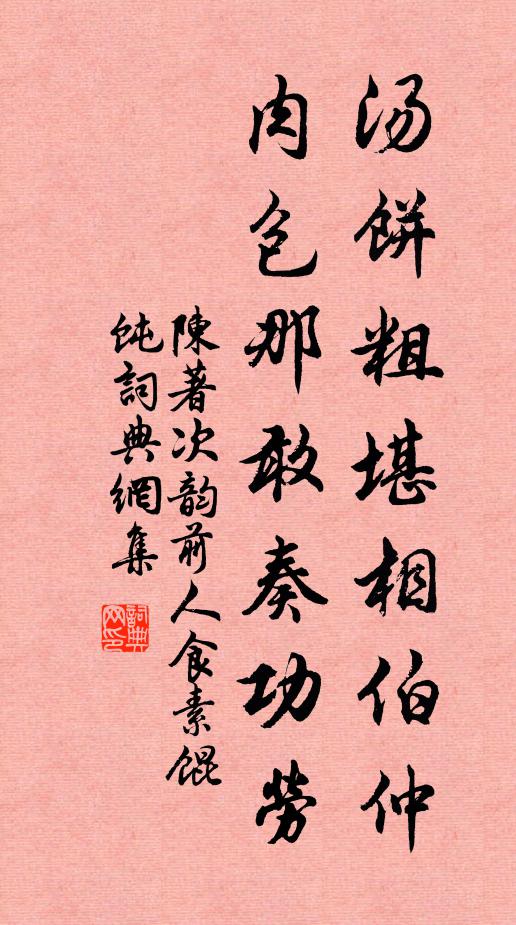 汤餅粗堪相伯仲
肉包那敢奏功勞
陳著次韵前人食素餛
飩詞典網集
詞典网印